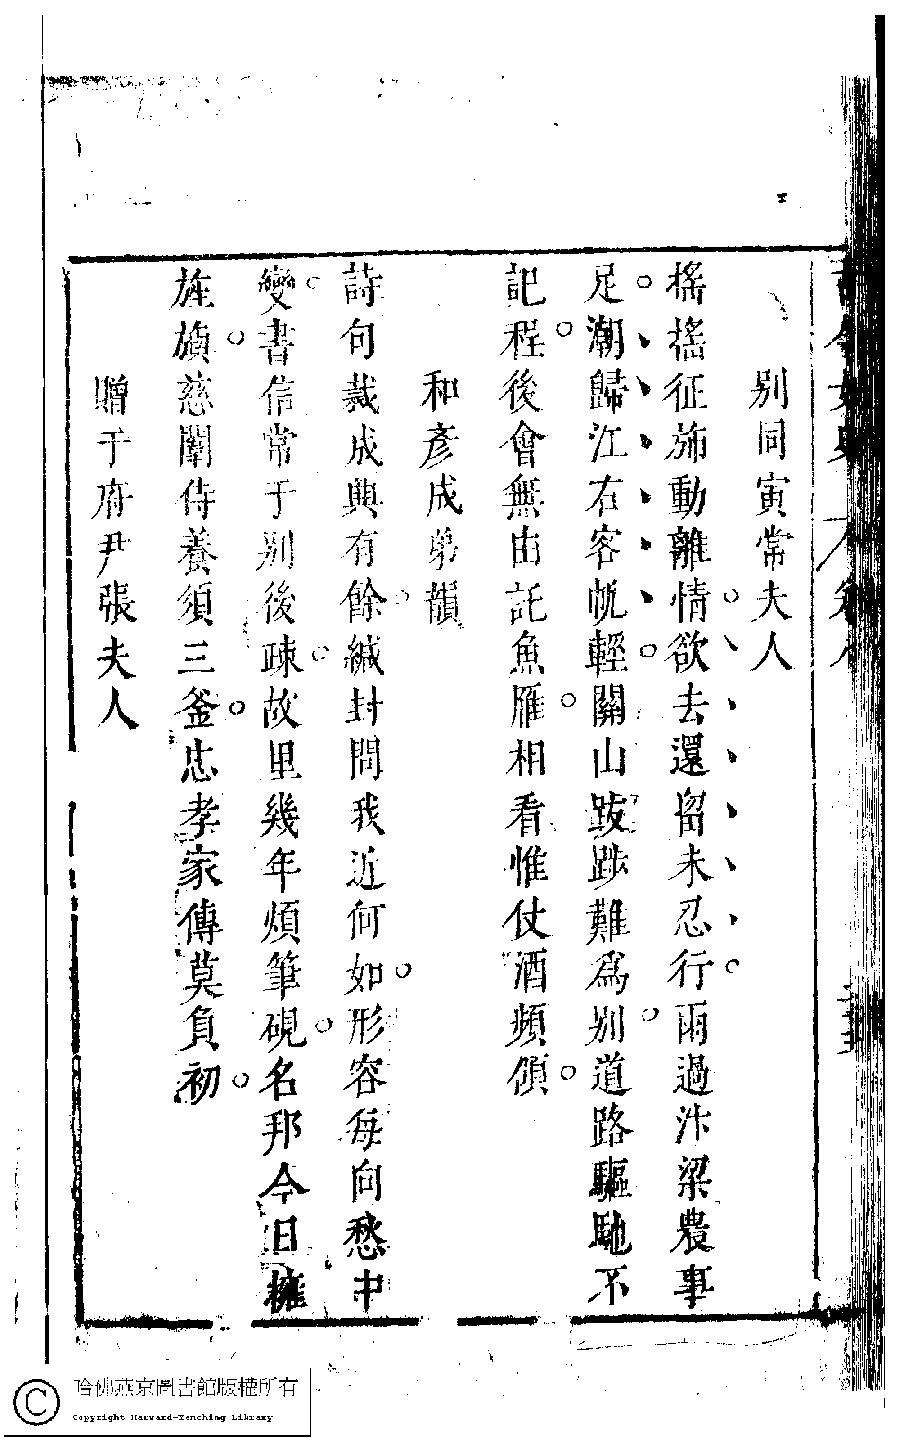 別同寅常夫人
搖搖征斾動離情欲去還留未忍行雨過汴梁農事
足潮歸江右客帆輕關山跋涉難爲別道路驅馳不
記程後會無由託魚雁相看惟仗酒頻傾
和彥成弟韻
詩句裁成興有餘緘封問我近何如形容每向愁中
變書信常于別後疎故里幾年煩筆硯名邦今日擁
旌旗慈闈侍養須三釜忠孝家傳莫負初
贈于府尹張夫人
哈佛燕京圖書館版權所有
Copyright Harvard-Yenching Library